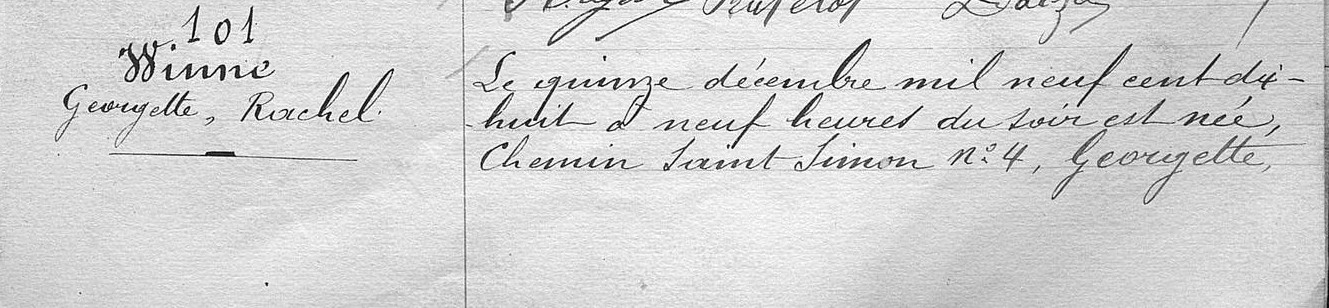 101
Winne
Georgette, Rachel.
Le quinze décembre mil neuf cent dix-
huit à neuf heures du soir est née,
Chemin Saint Simon n° 4, Georgette,